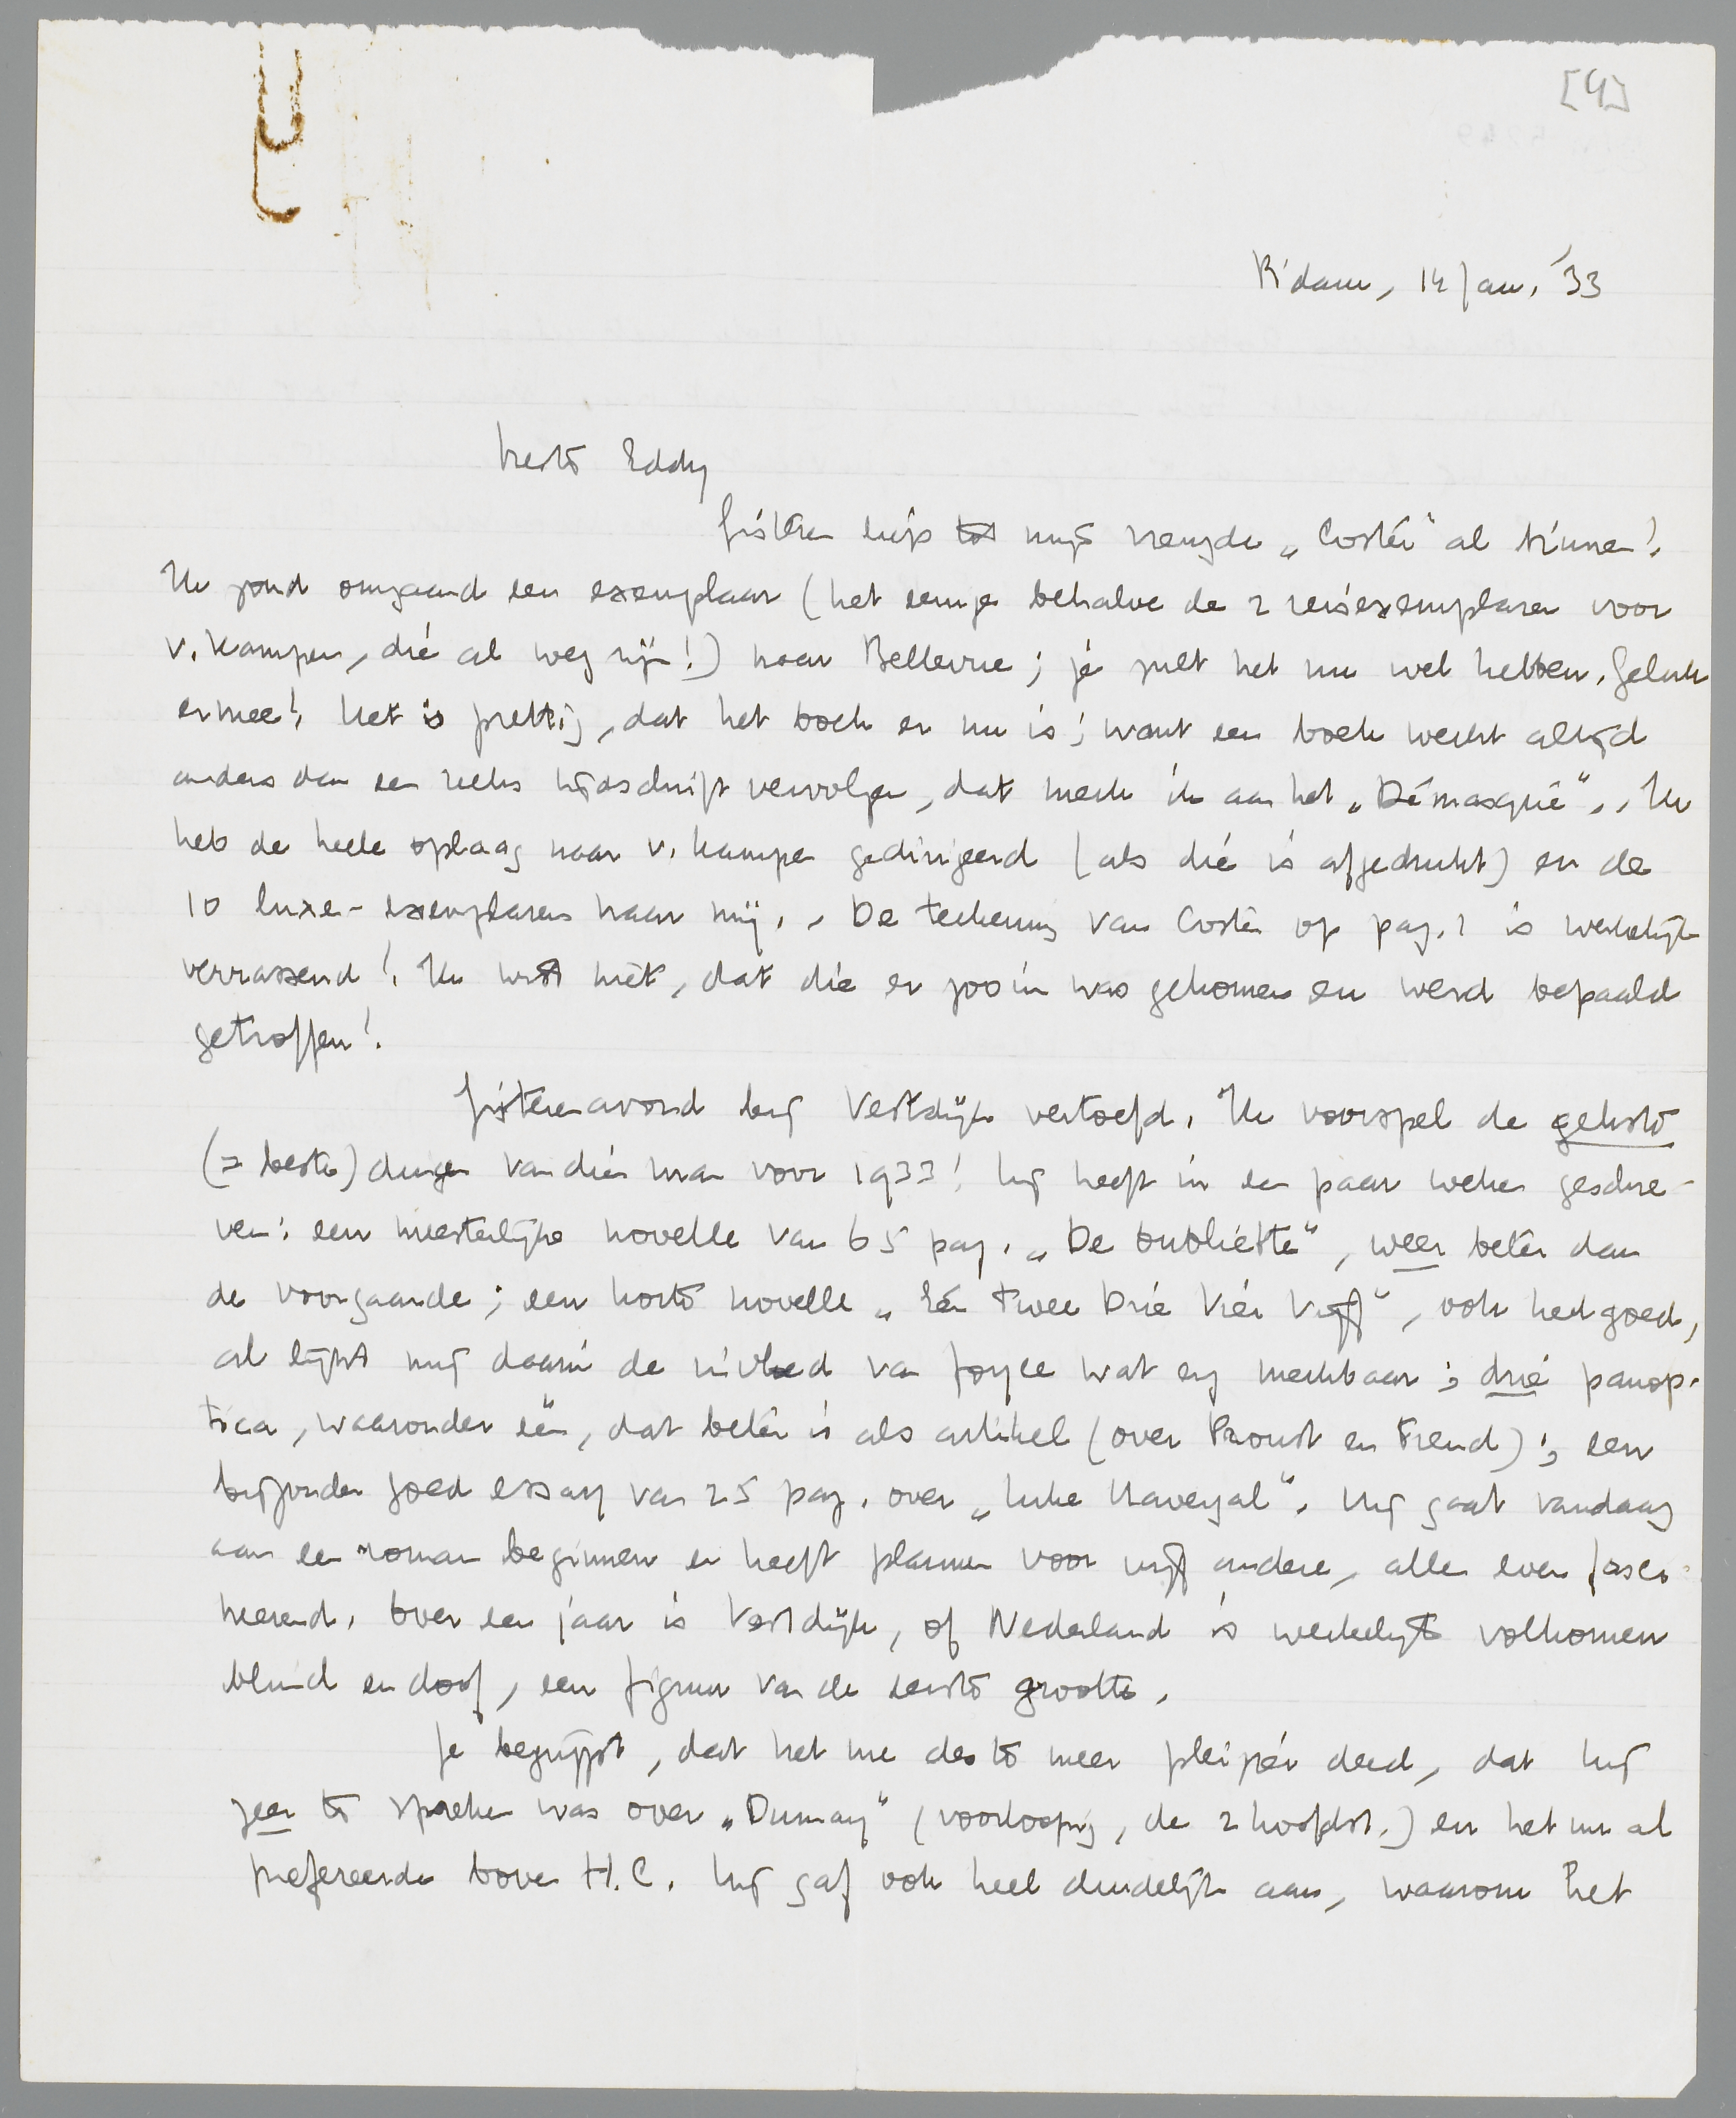 [4]
R'dam, 14 Jan. '33
Beste Eddy
Gisteren liep tot mijn vreugde „Coster" al binnen!
Ik zond omgaand een exemplaar (het eenige behalve de 2 reisexemplaren voor
v. Kampen, die al weg zijn!) naar Bellevue; je zult het nu wel hebben. Geluk
ermee! Het is prettig, dat het boek er nu is; want een boek werkt altijd
anders dan een reeks tijdschriftvervolgen, dat merk ik aan het „Démasqué". , Ik
heb de heele oplaag naar v. Kampen gedirigeerd (als die is afgedrukt) en de
10 luxe-exemplaren naar mij. , De teekening van Coster op pag. 1 is werkelijk
verrassend! Ik wist niet, dat die er zoo in was gekomen en werd bepaald
getroffen!
Gisterenavond bij Vestdijk vertoefd. Ik voorspel de gekste
(= beste) dingen van dien man voor 1933! Hij heeft in een paar weken geschre-
ven: een meesterlijke novelle van 65 pag. „De oubliëtte", weer beter dan
de voorgaande; een korte novelle „Eén Twee Drie Vier Vijf", ook heel goed,
al lijkt mij daarin de invloed van Joyce wat erg merkbaar; drie panop-
tica, waaronder één, dat beter is als artikel (over Proust en Freud); een
bijzonder goed essay van 25 pag. over „Luke Havergal". Hij gaat vandaag
aan een roman beginnen en heeft plannen voor vijf andere, alle even fasci-
neerend. Over een jaar is Vestdijk, of Nederland is werkelijk volkomen
blind en doof, een figuur van de eerste grootte.
Je begrijpt, dat het me des te meer pleizier deed, dat hij
zeer te spreken was over „Dumay" (voorloopig, de 2 hoofdst.) en het nu al
prefereerde boven H.C. Hij gaf ook heel duidelijk aan, waarom het